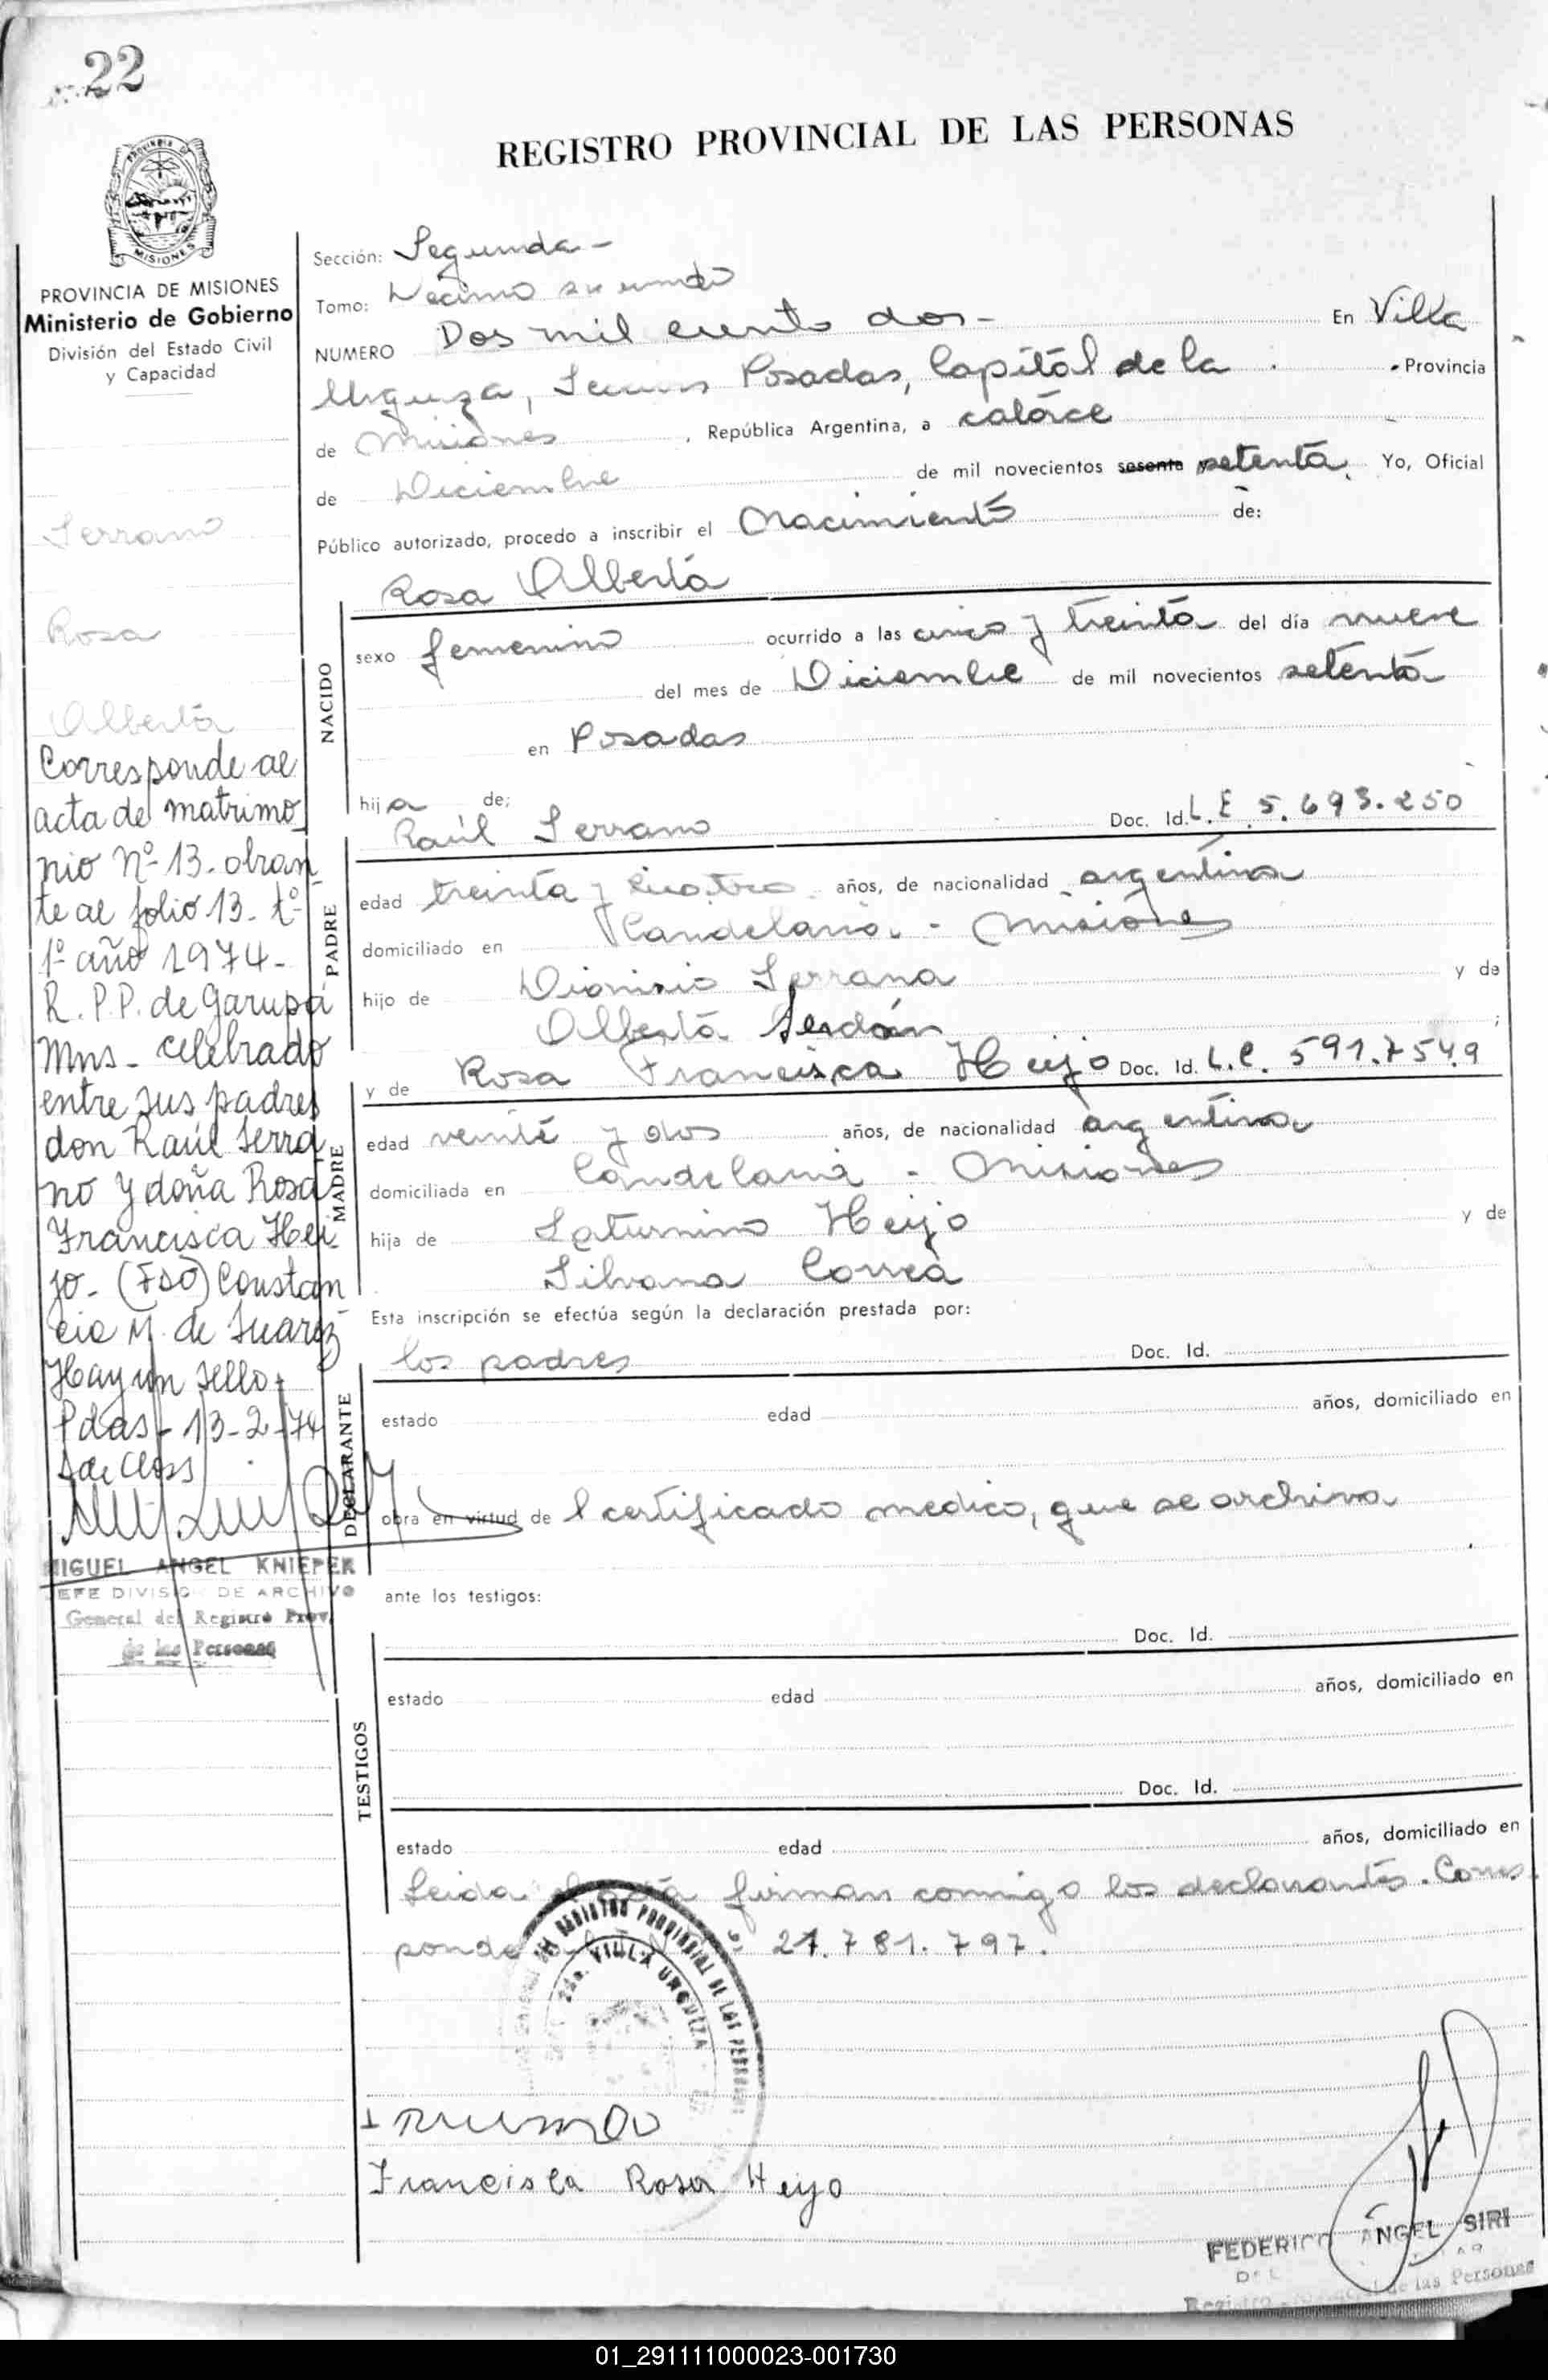 22
REGISTRO PROVINCIAL DE LAS PERSONAS
PROVINCIA DE MISIONES
Ministerio de Gobierno
División del Estado Civil
y Capacidad
Serrano
Rosa
Alberta
Corresponde al
acta de matrimo_
nio Nº 13. obran_
te al folio 13. tº
1º año 1974-
R. P.P. de Garupa
Mns- celebrado
entre sus padres
don Raúl Serra_
no y doña Rosa
Francisca Hei_
jo- (Fdo) Constan
cia M. de Suarez
Hay un sello-
Pdas- 13-2-74
MIGUEL ANGEL KNIEPER
JEFE DIVISION DE ARCHIVO
General del Registro Prov.
de las Personas
Sección: Segunda-
Tomo: Decimo
NUMERO Dos mil ciento dos- En Villa
Urquiza, Posadas, Capitál de la Provincia
de Misiones, República Argentina, a catórce
de Diciembre de mil novecientos sesenta setenta. Yo, Oficial
Público autorizado, procedo a inscribir el Nacimiento de:
Rosa Alberta
NACIDO
sexo femenino ocurrido a las cinco y treinta del día nueve
del mes de Diciembre de mil novecientos setenta
en Posadas
hija de:
Raúl Serrano Doc. Id. L.E 5.693.250
PADRE
edad treinta y cuatro años, de nacionalidad argentina
domiciliado en Candelaria. - Misiones
hijo de Dionisio Serrano y de
Alberta
y de Rosa Francisca Heijo Doc. Id. L.C. 591.7549
MADRE
edad veinte y dos años, de nacionalidad argentina
domiciliada en Candelaria - Misiones
hija de Saturnino Heijo y de
Silvana Correa
Esta inscripción se efectúa según la declaración prestada por:
los padres Doc. Id.
DECLARANTE
estado edad años, domiciliado en
obra en virtud de l certificado medico, que se archiva
ante los testigos:
Doc. Id.
TESTIGOS
estado edad años, domiciliado en
Doc. Id.
estado edad años, domiciliado en
Leida el acta firman conmigo los declarantes. Corres
ponde 21.781.797.
REGISTRO PROVINCIAL DE LAS PERSONAS
VILLA URQUIZA
Francisca Rosa Heijo
FEDERICO ANGEL SIRI
Registro Provincial de las Personas
01_291111000023-001730